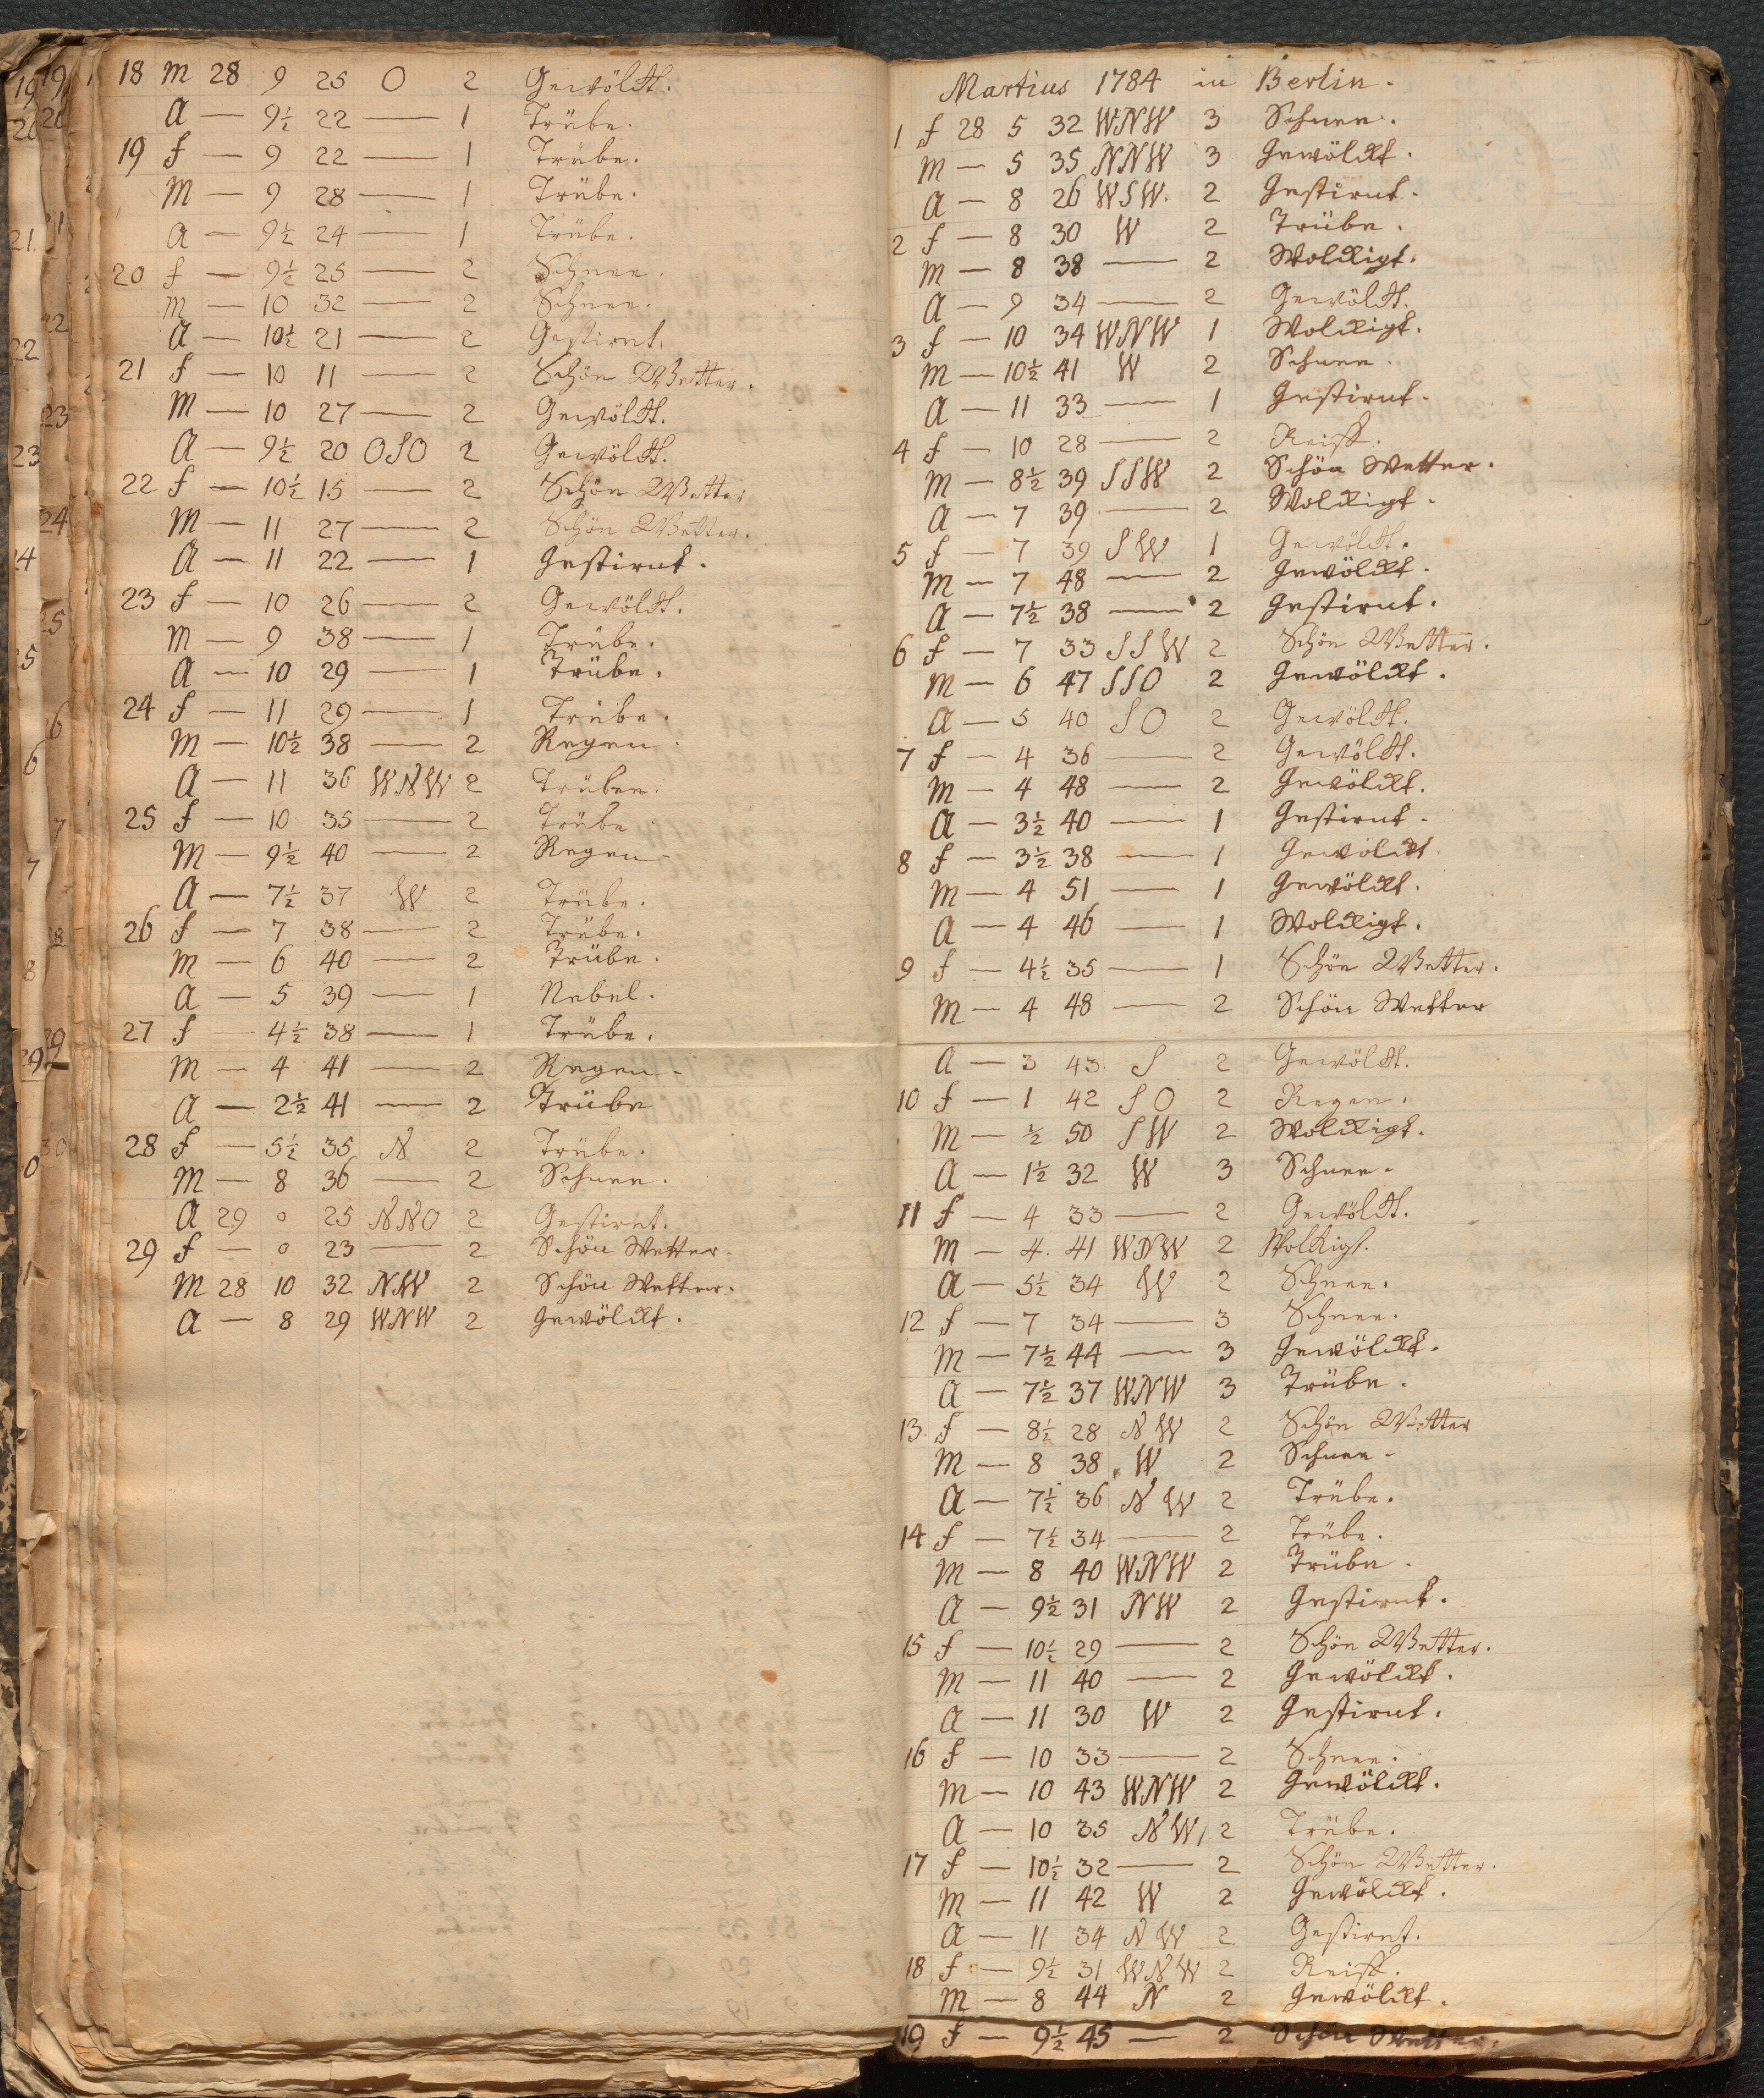 18 M 28 9 25 O 2 Gewölckt.
A — 9½ 22 — 1 Trübe.
19 f — 9 22 — 1 Trübe.
M — 9 28 — 1 Trübe.
A — 9½ 24 — 1 Trübe.
20 f — 9½ 25 — 2 Schnee.
M — 10 32 — 2 Schnee.
A — 10½ 21 — 2 Gestirnt.
21 f — 10 11 — 2 Schön Wetter.
M — 10 27 — 2 Gewölckt.
A — 9½ 20 OSO 2 Gewölckt.
22 f — 10½ 15 — 2 Schön Wetter
M — 11 27 — 2 Schön Wetter.
A — 11 22 — 1 Gestirnt.
23 f — 10 26 — 2 Gewölckt.
M — 9 38 — 1 Trübe.
A — 10 29 — 1 Trübe.
24 f — 11 29 — 1 Trübe.
M — 10½ 38 — 2 Regen.
A — 11 36 WNW 2 Trübe.
25 f — 10 35 — 2 Trübe
M — 9½ 40 — 2 Regen
A — 7½ 37 W 2 Trübe.
26 f — 7 38 — 2 Trübe.
M — 6 40 — 2 Trübe.
A — 5 39 — 1 Nebel.
27 f — 4½ 38 — 1 Trübe.
M — 4 41 — 2 Regen.
A — 2½ 41 — 2 Trübe
28 f — 5½ 35 N 2 Trübe.
M — 8 36 — 2 Schnee.
A 29 0 25 NNO 2 Gestirnt.
29 f — 0 23 — 2 Schön Wetter.
M 28 10 32 NW 2 Schön Wetter.
A — 8 29 WNW 2 Gewölckt.
Martius 1784 in Berlin.
1 f 28 5 32 WNW 3 Schnee.
M — 5 35 NNW 3 Gewölckt.
A — 8 26 WSW. 2 Gestirnt.
2 f — 8 30 W 2 Trübe.
M — 8 38 — 2 Wolckigt.
A — 9 34 — 2 Gewölckt.
3 f — 10 34 WNW 1 Wolckigt.
M — 10½ 41 W 2 Schnee.
A — 11 33 — 1 Gestirnt.
4 f — 10 28 — 2 Reiff.
M — 8½ 39 SSW 2 Schön Wetter.
A — 7 39 — 2 Wolckigt.
5 f — 7 39 SW 1 Gewölckt.
M — 7 48 — 2 Gewölckt.
A — 7½ 38 — 2 Gestirnt.
6 f — 7 33 SSW 2 Schön Wetter.
M — 6 47 SSO 2 Gewölckt.
A — 5 40 SO 2 Gewölckt.
7 f — 4 36 — 2 Gewölckt.
M — 4 48 — 2 Gewölckt.
A — 3½ 40 — 1 Gestirnt.
8 f — 3½ 38 — 1 Gewölckt
M — 4 51 — 1 Gewölckt.
A — 4 46 — 1 Wolckigt.
9 f — 4½ 35 — 1 Schön Wetter.
M — 4 48 — 2 Schön Wetter
A — 3 43. S 2 Gewölckt.
10 f — 1 42 SO 2 Regen.
M — ½ 50 SW 2 Wolckigt.
A — 1½ 32 W 3 Schnee.
11 f — 4 33 — 2 Gewölckt.
M — 4. 41 WNW 2 Wolckigt.
A — 5½ 34 W 2 Schnee.
12 f — 7 34 — 3 Schnee.
M — 7½ 44 — 3 Gewölckt.
A — 7½ 37 WNW 3 Trübe.
13. f — 8½ 28 NW 2 Schön Wetter
M — 8 38 W 2 Schnee.
A — 7½ 36 NW 2 Trübe.
14 f — 7½ 34 — 2 Trübe.
M — 8 40 WNW 2 Trübe.
A — 9½ 31 NW 2 Gestirnt.
15 f — 10½ 29 — 2 Schön Wetter.
M — 11 40 — 2 Gewölckt.
A — 11 30 W 2 Gestirnt.
16 f — 10 33 — 2 Schnee.
M — 10 43 WNW 2 Gewölckt.
A — 10 35 NW 2 Trübe.
17 f — 10½ 32 — 2 Schön Wetter.
M — 11 42 W 2 Gewölckt.
A — 11 34 NW 2 Gestirnt.
18 f — 9½ 31 WNW 2 Reiff.
M — 8 44 N 2 Gewölckt.
19 f — 9½ 45 — 2 Schön Wetter.